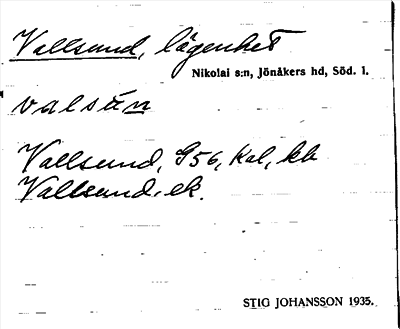 Vallsund, lägenhet
Nikolai s:n, Jönåkers hd, Söd. l.
valsun
Vallsund, G56, Kal, kb
Vallsund, ek.
STIG JOHANSSON 1935.